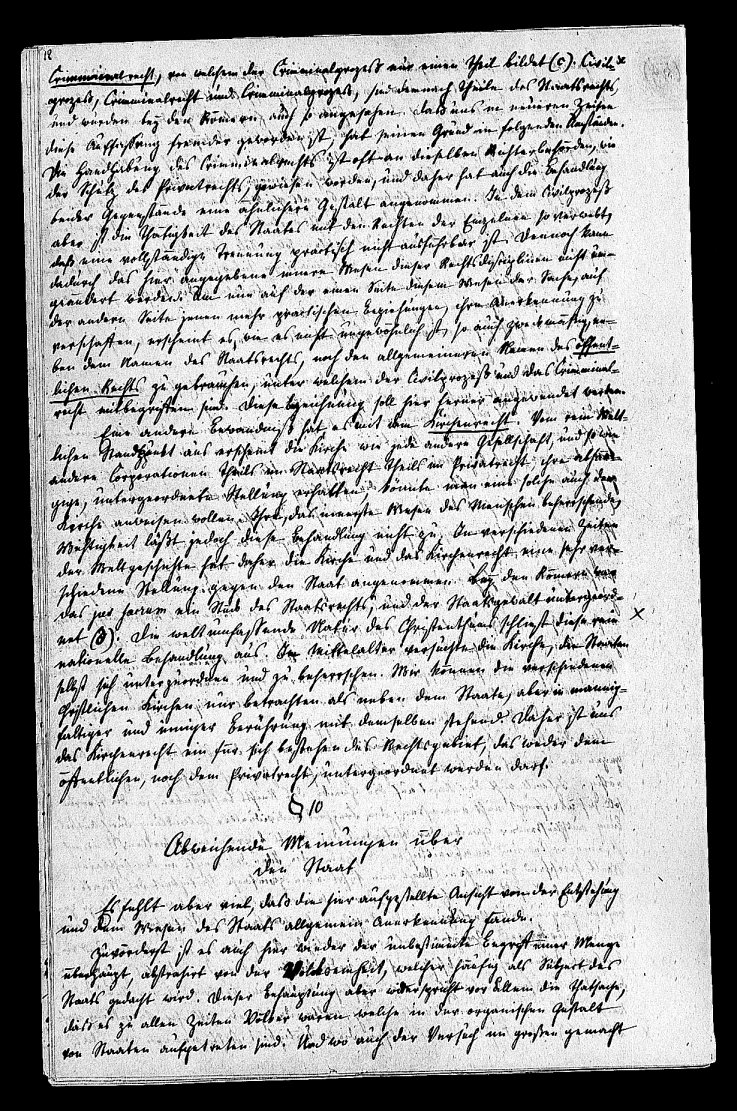 18
Criminalrecht, von welchem der Criminalprozeß nur einen Theil bildet (c). Civil-
prozeß, Criminalrecht und Criminalprozeß, sind demnach Theile des Staatsrechts,
und wurden bey den Römern auch so angesehen. Daß uns in neueren Zeiten
diese Auffassung fremder geworden ist, hat seinen Grund in folgenden Umständen.
Die Handhabung des Criminalrechts ist oft an dieselben Richterbehörden, wie
der Schutz des Privatrechts, gewiesen worden, und daher hat auch die Behandlung
beider Gegenstände eine ähnlichere Gestalt angenommen. In dem Civilprozeß
aber ist die Thätigkeit des Staates mit den Rechten der Einzelnen so verwebt,
daß eine vollständige Trennung practisch nicht ausführbar ist. Dennoch kann
dadurch das hier angegebene innere Wesen dieser Rechtsdisciplinen nicht um-
geändert werden. Um nun auf der einen Seite diesem Wesen der Sache, auf
der andern Seite jenen mehr practischen Beziehungen, ihre Anerkennung zu
verschaffen, erscheint es, wie es nicht ungewöhnlich ist, so auch zweckmäßig, ne-
ben dem Namen des Staatsrechts, noch den allgemeineren Namen des öffent-
lichen Rechts zu gebrauchen, unter welchem der Civilprozeß und das Criminal-
recht mitbegriffen sind. Diese Bezeichnung soll hier ferner angewendet werden.
Eine andere Bewandniß hat es mit dem Kirchenrecht. Vom rein Welt-
lichen Standpunkt aus erscheint die Kirche wie jede andere Gesellschaft, und so wie
andere Corporationen theils im Staatsrecht theils im Privatrecht, ihre abhän-
gige, untergeordnete Stellung erhalten, könnte man eine solche auch der
Kirche anweisen wollen. Ihre, das innerste Wesen des Menschen beherrschende,
Wichtigkeit läßt jedoch diese Behandlung nicht zu. In verschiedenen Zeiten
der Weltgeschichte hat daher die Kirche und das Kirchenrecht eine sehr ver-
schiedene Stellung gegen den Staat angenommen. Bey den Römern war
das jus sacrum ein Stück des Staatsrechts, und der Staatsgewalt untergeord-
net (d). Die weltumfassende Natur des Christenthums schließt diese rein
nationelle Behandlung aus. Im Mittelalter versuchte die Kirche, die Staaten
selbst sich unterzuordnen und zu beherrschen. Wir können die verschiedenen
christlichen Kirchen nur betrachten als neben dem Staate, aber in mannig-
faltiger und inniger Berührung mit demselben stehend. Daher ist uns
das Kirchenrecht ein für sich bestehendes Rechtsgebiet, das weder dem
öffentlichen, noch dem Privatrecht, untergeordnet werden darf.
§ 10
Abweichende Meinungen über
den Staat
Es fehlt aber viel, daß die hier aufgestellte Ansicht von der Entstehung
und dem Wesen des Staats allgemein Anerkennung fände.
Zuvörderst ist es auch hier wieder der unbestimmte Begriff einer Menge
überhaupt, abstrahirt von der Volkseinheit, welcher häufig als Subject des
Staats gedacht wird. Dieser Behauptung aber widerspricht vor Allem die Thatsache,
daß es zu allen Zeiten Völker waren welche in der organischen Gestalt
von Staaten aufgetreten sind. Und wo auch der Versuch im großen gemacht